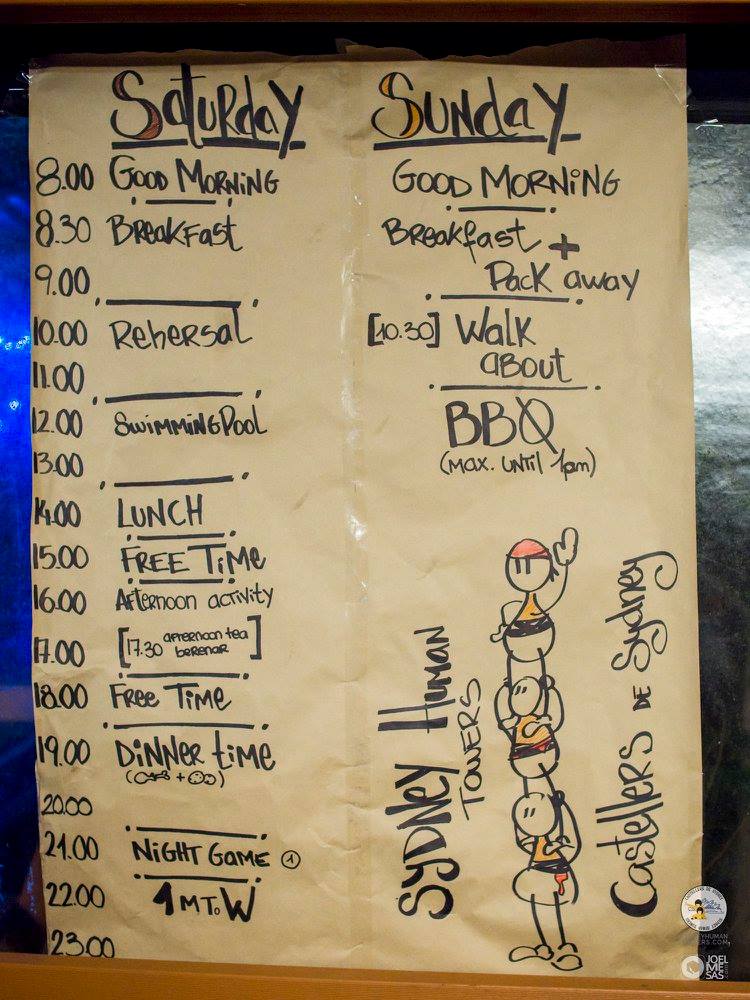 Saturday
8.00 Good Morning
8.30 Breakfast
9.00
10.00 Rehersal
11.00
12.00 Swimming Pool
13.00
14.00 LUNCH
15.00 FREE TIME
16.00 Afternoon activity
17.00 [17.30 afternoon tea
berenar]
18.00 Free Time
19.00 Dinner time
20.00
21.00 Night Game 1
22.00 1 MToW
23.00
Sunday
GOOD MORNING
Breakfast +
Pack away
[10.30] Walk
about
BBQ
(MAX. UNTIL 1pm)
SYDNEY HUMAN
TOWERS
Castellers de Sydney
JOEL
ME
SAS
.com